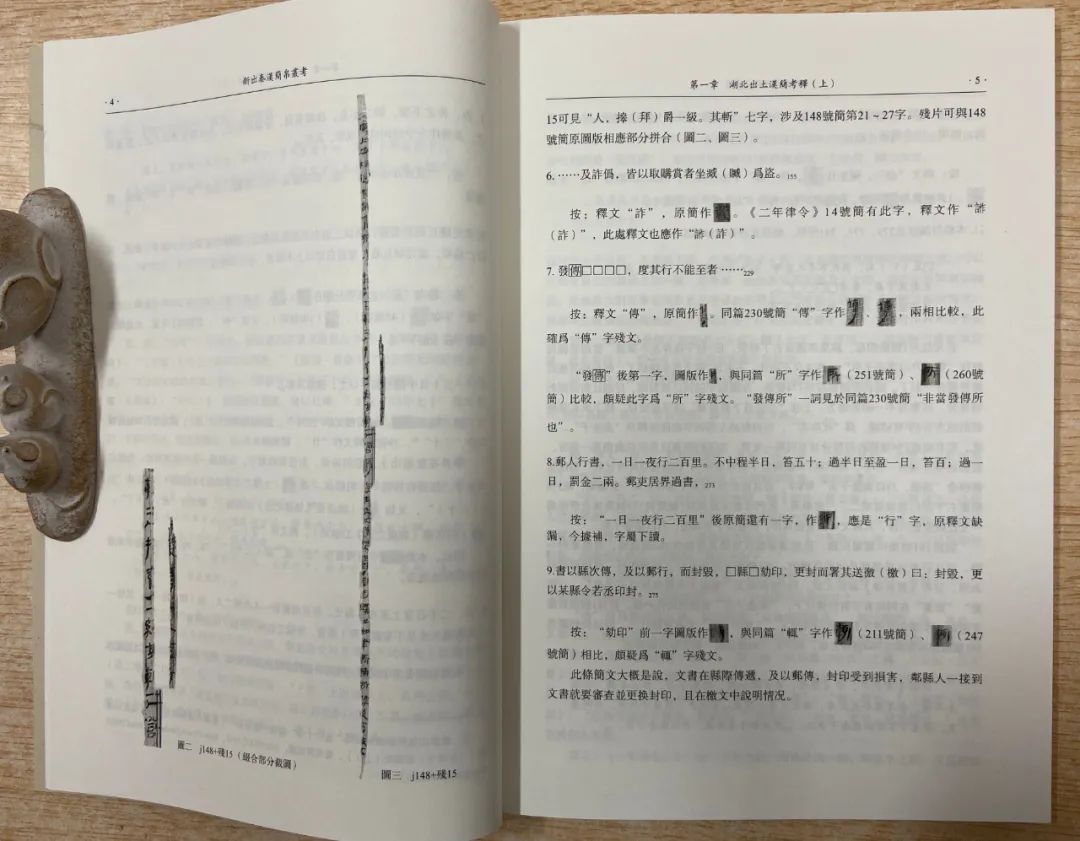 ·4·
新出秦漢簡帛叢考
圖二 j148+殘15（綴合部分截圖）
圖三 j148+殘15
第一章 湖北出土漢簡考釋（上）
·5·
15可見“人，搼（拜）爵一級。其斬”七字，涉及148號簡第21～27字。殘片可與148
號簡原圖版相應部分拼合（圖二、圖三）。
6.……及詐僞，皆以取購賞者坐臧（贓）爲盜。155
按：釋文“詐”，原簡作。《二年律令》14號簡有此字，釋文作“䛐
（詐）”，此處釋文也應作“䛐（詐）”。
7. 發傳□□□□，度其行不能至者……229
按：釋文“傳”，原簡作。同篇230號簡“傳”字作、，兩相比較，此
確爲“傳”字殘文。
“發傳”後第一字，圖版作，與同篇“所”字作（251號簡）、（260號
簡）比較，頗疑此字爲“所”字殘文。“發傳所”一詞見於同篇230號簡“非當發傳所
也”。
8.郵人行書，一日一夜行二百里。不中程半日，笞五十；過半日至盈一日，笞百；過一
日，罰金二兩。郵吏居界過書，273
按：“一日一夜行二百里”後原簡還有一字，作，應是“行”字，原釋文缺
漏，今據補，字屬下讀。
9.書以縣次傳，及以郵行，而封毀，□縣□劾印，更封而署其送徼（檄）曰：封毀，更
以某縣令若丞印封。275
按：“劾印”前一字圖版作，與同篇“輒”字作（211號簡）、（247
號簡）相比，頗疑爲“輒”字殘文。
此條簡文大概是說，文書在縣際傳遞，及以郵傳，封印受到損害，鄰縣人一接到
文書就要審查並更換封印，且在檄文中說明情況。